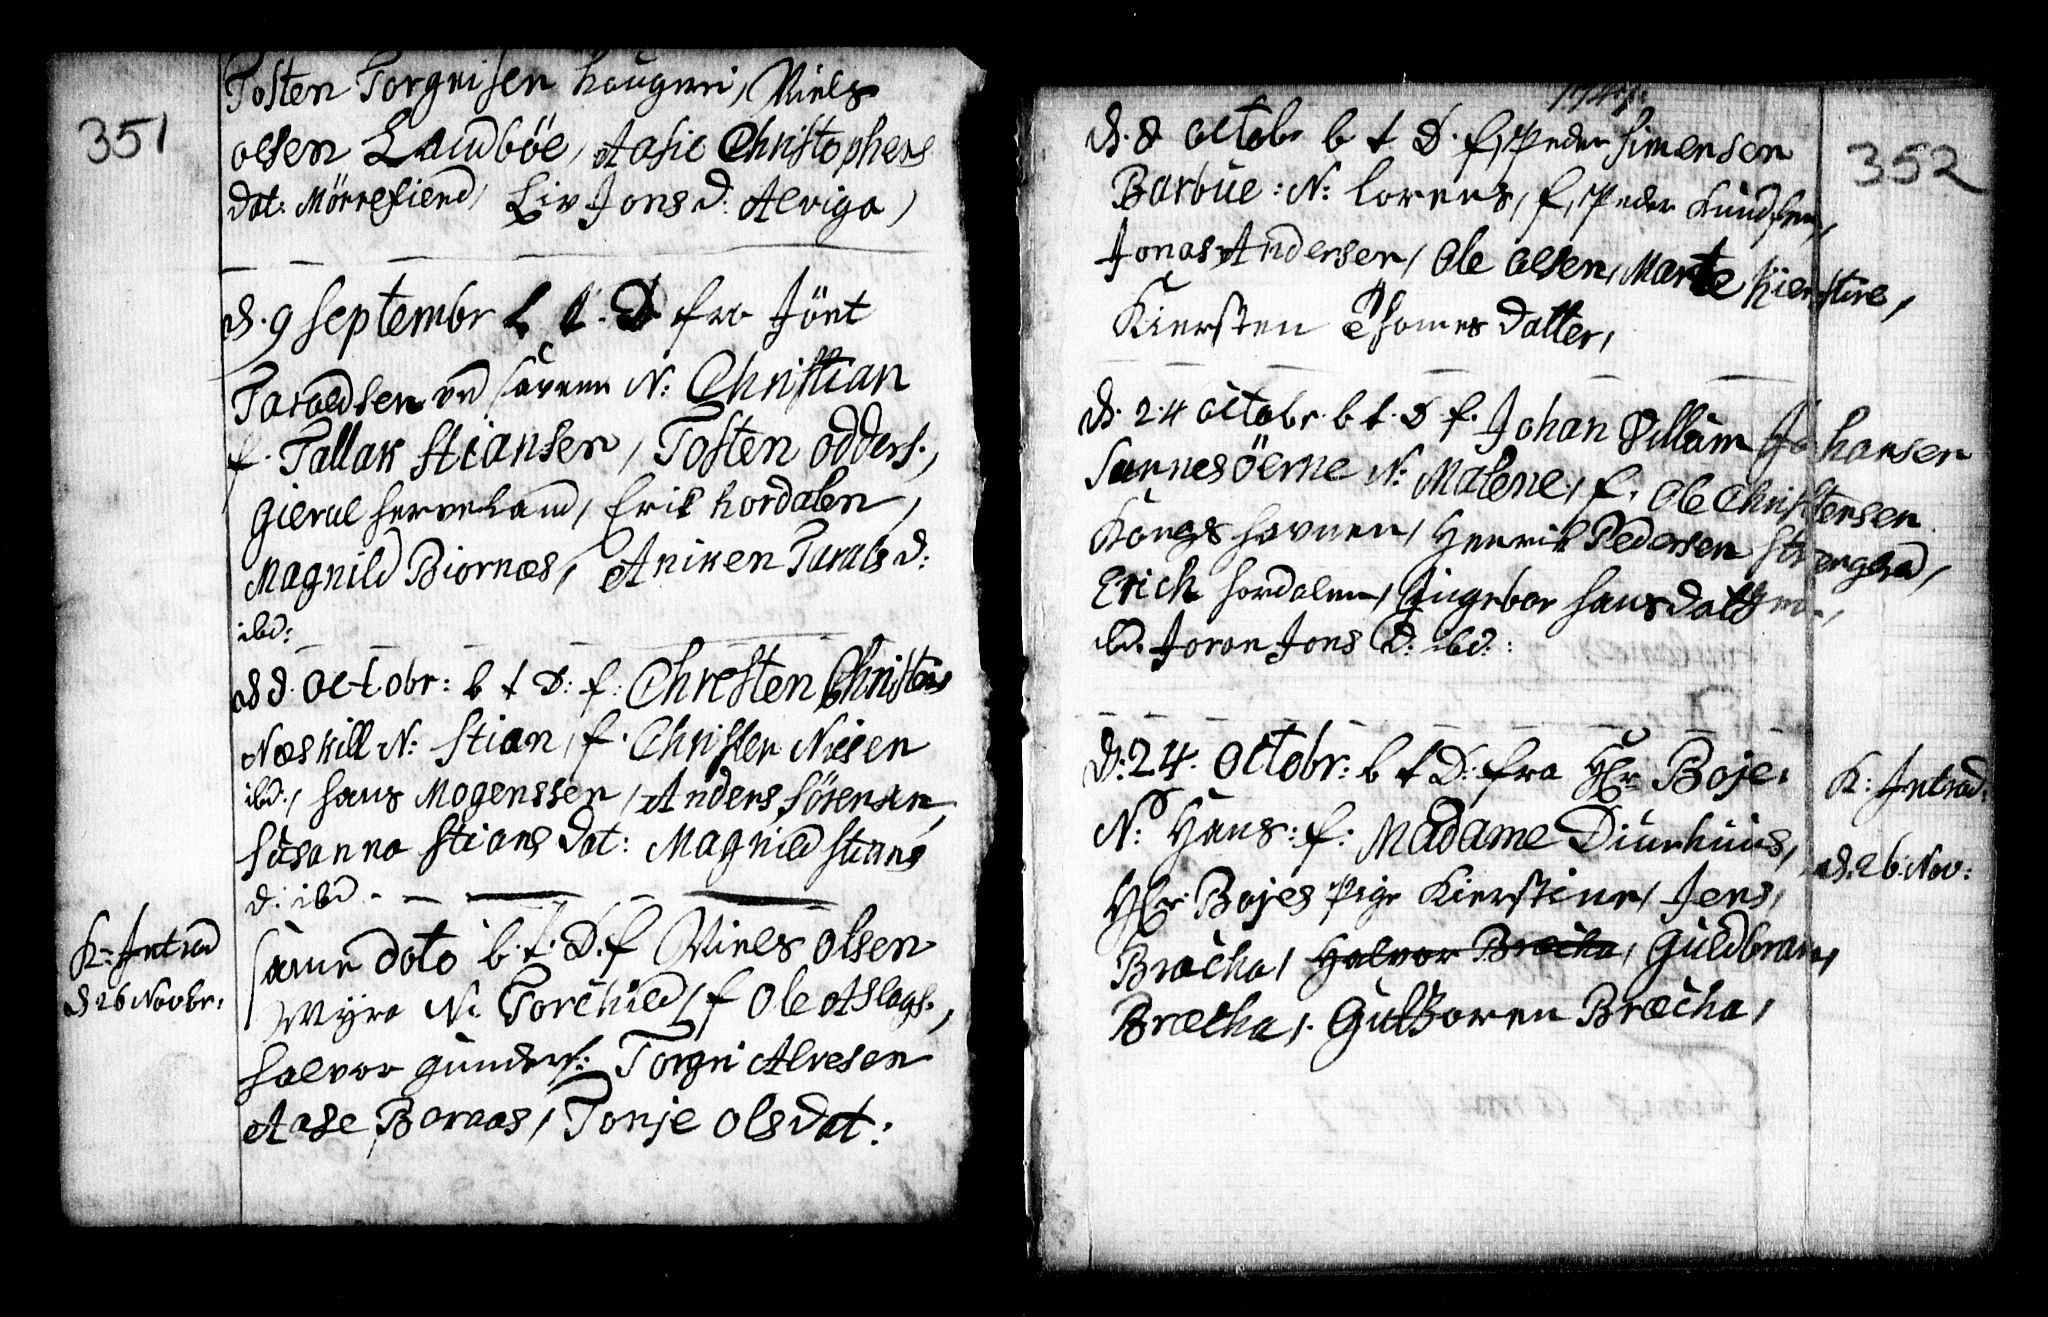 351
Tosten Torgrisen Haugwri, Niels
olsen Landböe, Aasie Christophers
dat: Mörrefierd, Liv Jons d: Alviga,
d. 9 Septembr b t. D fra Jört
Taroldsen ved Sagene N: Christian
f. Tallak Stiansen, Tosten odders.,
Gierul herveland, Erik hordalen,
Magnild Biornæs, Aniken Tarals d:
ibd:
d 8. octobr: b t D: f: Christen Christens
Næskill N: Stian, f. Christen Nielsen
ibd:, Hans Mogenssen, Anders Sörensen,
Susanna Stians dat: Magnild Stians
d: ibd.
Same dato b. t. D. f Niels olsen
Myra N: Torchild, f Ole Aslags.,
Halvor gunders: Torgri Alvesen
Aase Boraas, Tonje ols dat:
K: Introd
d 26 Novbr:
352
d. 8 octobr b t D. f, Peder Simensen
Barbue: N: Lorens, f, Peder Knudsen,
Jonas Andersen, Ole olsen, Marte Kierstine,
Kiersten Thomes datter,
d. 24 octobr. b t. D f. Johan Villum Johansen
Sarnesöerne N: Malene, f. Ole Christensen
Kongshavnen, Henrik Pedersen
Erich hordalen, Jngebor Hans datter
ibd. Joran Jons D: ibd::
d: 24. octobr: b t D: fra Hr Boje.
N: Hans: f. Madame Diurhuus,
Hr: Bojes Pige Kierstine, Jens,
Bræcha, Halvor Bræcha, Guldbran,
Bræcha,. Gutboren Bræcha,
K: Introd:
d. 26. Nov: